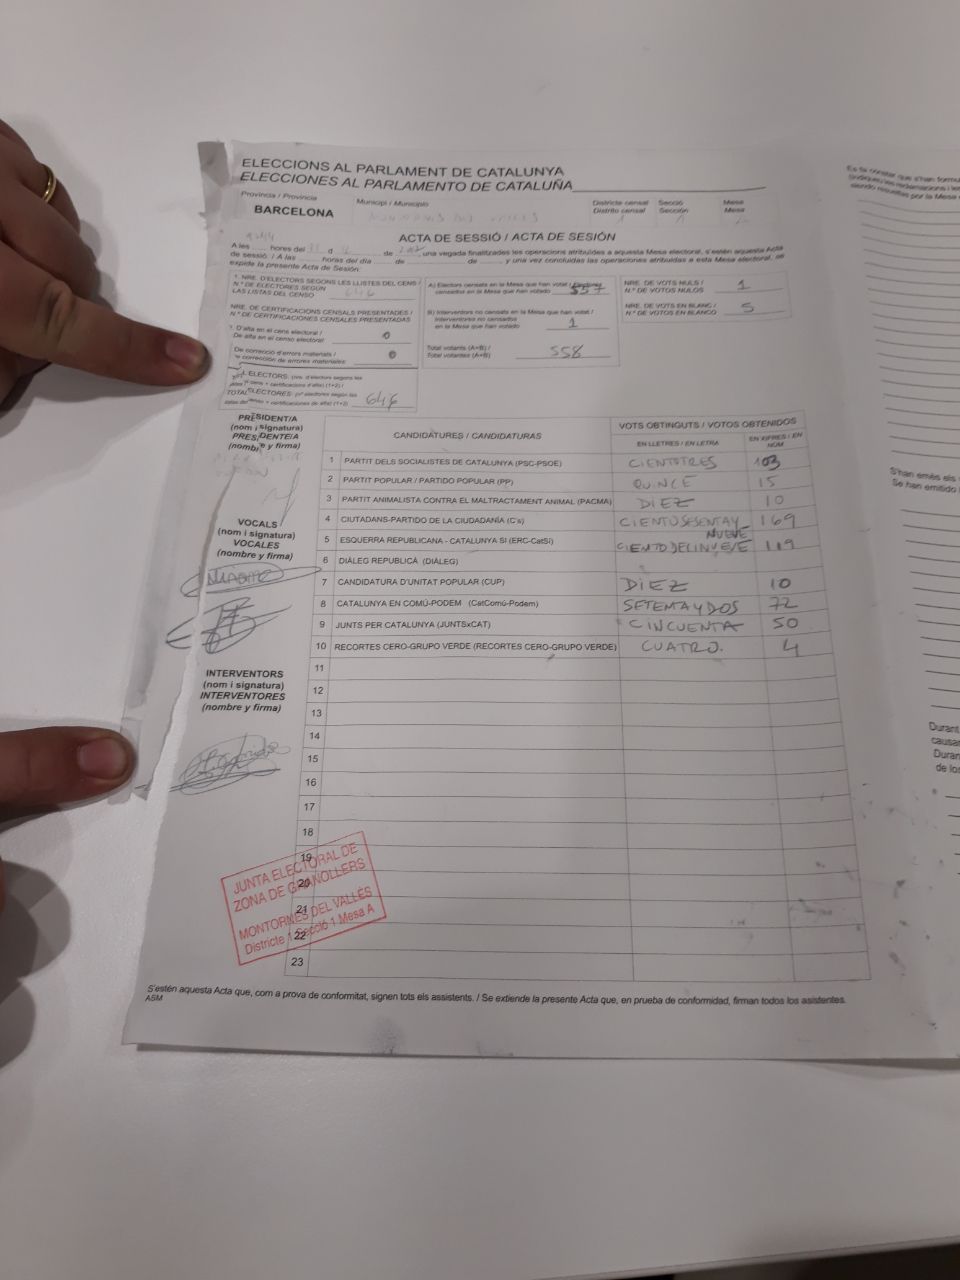 ELECCIONS AL PARLAMENT DE CATALUNYA
ELECCIONES AL PARLAMENTO DE CATALUÑA
Província / Provincia
BARCELONA
Municipi / Municipio
Districte censal
Distrito censal
1
Secció
Sección
1
Mesa
Mesa
ACTA DE SESSIÓ / ACTA DE SESIÓN
A les ...... hores del ...... d ...... de ...... una vegada finalitzades les operacions atribuïdes a aquesta Mesa electoral, s'estén aquesta Acta
de sessió. / A las ...... horas del día ...... de ...... de ...... y una vez concluidas las operaciones atribuidas a esta Mesa electoral, se
expide la presente Acta de Sesión:
1. NRE. D'ELECTORS SEGONS LES LLISTES DEL CENS /
N.º DE ELECTORES SEGÚN
LAS LISTAS DEL CENSO 646
NRE. DE CERTIFICACIONS CENSALS PRESENTADES /
N.º DE CERTIFICACIONES CENSALES PRESENTADAS
D'alta en el cens electoral /
De alta en el censo electoral 0
De correcció d'errors materials /
corrección de errores materiales 0
ELECTORS:
TOTAL ELECTORES: 646
A) Electors censats en la Mesa que han votat / Electores
censados en la Mesa que han votado 557
B) Interventors no censats en la Mesa que han votat /
Interventores no censados
en la Mesa que han votado 1
Total votants (A+B) /
Total votantes (A+B) 558
NRE. DE VOTS NULS /
N.º DE VOTOS NULOS 1
NRE. DE VOTS EN BLANC /
N.º DE VOTOS EN BLANCO 5
PRESIDENT/A
(nom i signatura)
PRESIDENTE/A
(nombre y firma)
VOCALS
(nom i signatura)
VOCALES
(nombre y firma)
INTERVENTORS
(nom i signatura)
INTERVENTORES
(nombre y firma)
CANDIDATURES / CANDIDATURAS
VOTS OBTINGUTS / VOTOS OBTENIDOS
EN LLETRES / EN LETRA
EN XIFRES / EN NÚM
1 PARTIT DELS SOCIALISTES DE CATALUNYA (PSC-PSOE) CIENTOTRES 103
2 PARTIT POPULAR / PARTIDO POPULAR (PP) QUINCE 15
3 PARTIT ANIMALISTA CONTRA EL MALTRACTAMENT ANIMAL (PACMA) DIEZ 10
4 CIUTADANS-PARTIDO DE LA CIUDADANÍA (C's) CIENTOSESENTAY NUEVE 169
5 ESQUERRA REPUBLICANA - CATALUNYA SÍ (ERC-CatSí) CIENTODECINUEVE 119
6 DIÀLEG REPUBLICÀ (DIÀLEG)
7 CANDIDATURA D'UNITAT POPULAR (CUP) DIEZ 10
8 CATALUNYA EN COMÚ-PODEM (CatComú-Podem) SETEMAYDOS 72
9 JUNTS PER CATALUNYA (JUNTSxCAT) CINCUENTA 50
10 RECORTES CERO-GRUPO VERDE (RECORTES CERO-GRUPO VERDE) CUATRO. 4
11
12
13
14
15
16
17
18
19
20
21
22
23
JUNTA ELECTORAL DE
ZONA DE GRANOLLERS
MONTORNÈS DEL VALLÈS
Districte 1 Secció 1 Mesa A
S'estén aquesta Acta que, com a prova de conformitat, signen tots els assistents. / Se extiende la presente Acta que, en prueba de conformidad, firman todos los asistentes.
ASM
Es fa constar que s'han formu
siendo resueltas por la Mesa
S'han emès els
Se han emitido
Durant
causa
Duran
de los